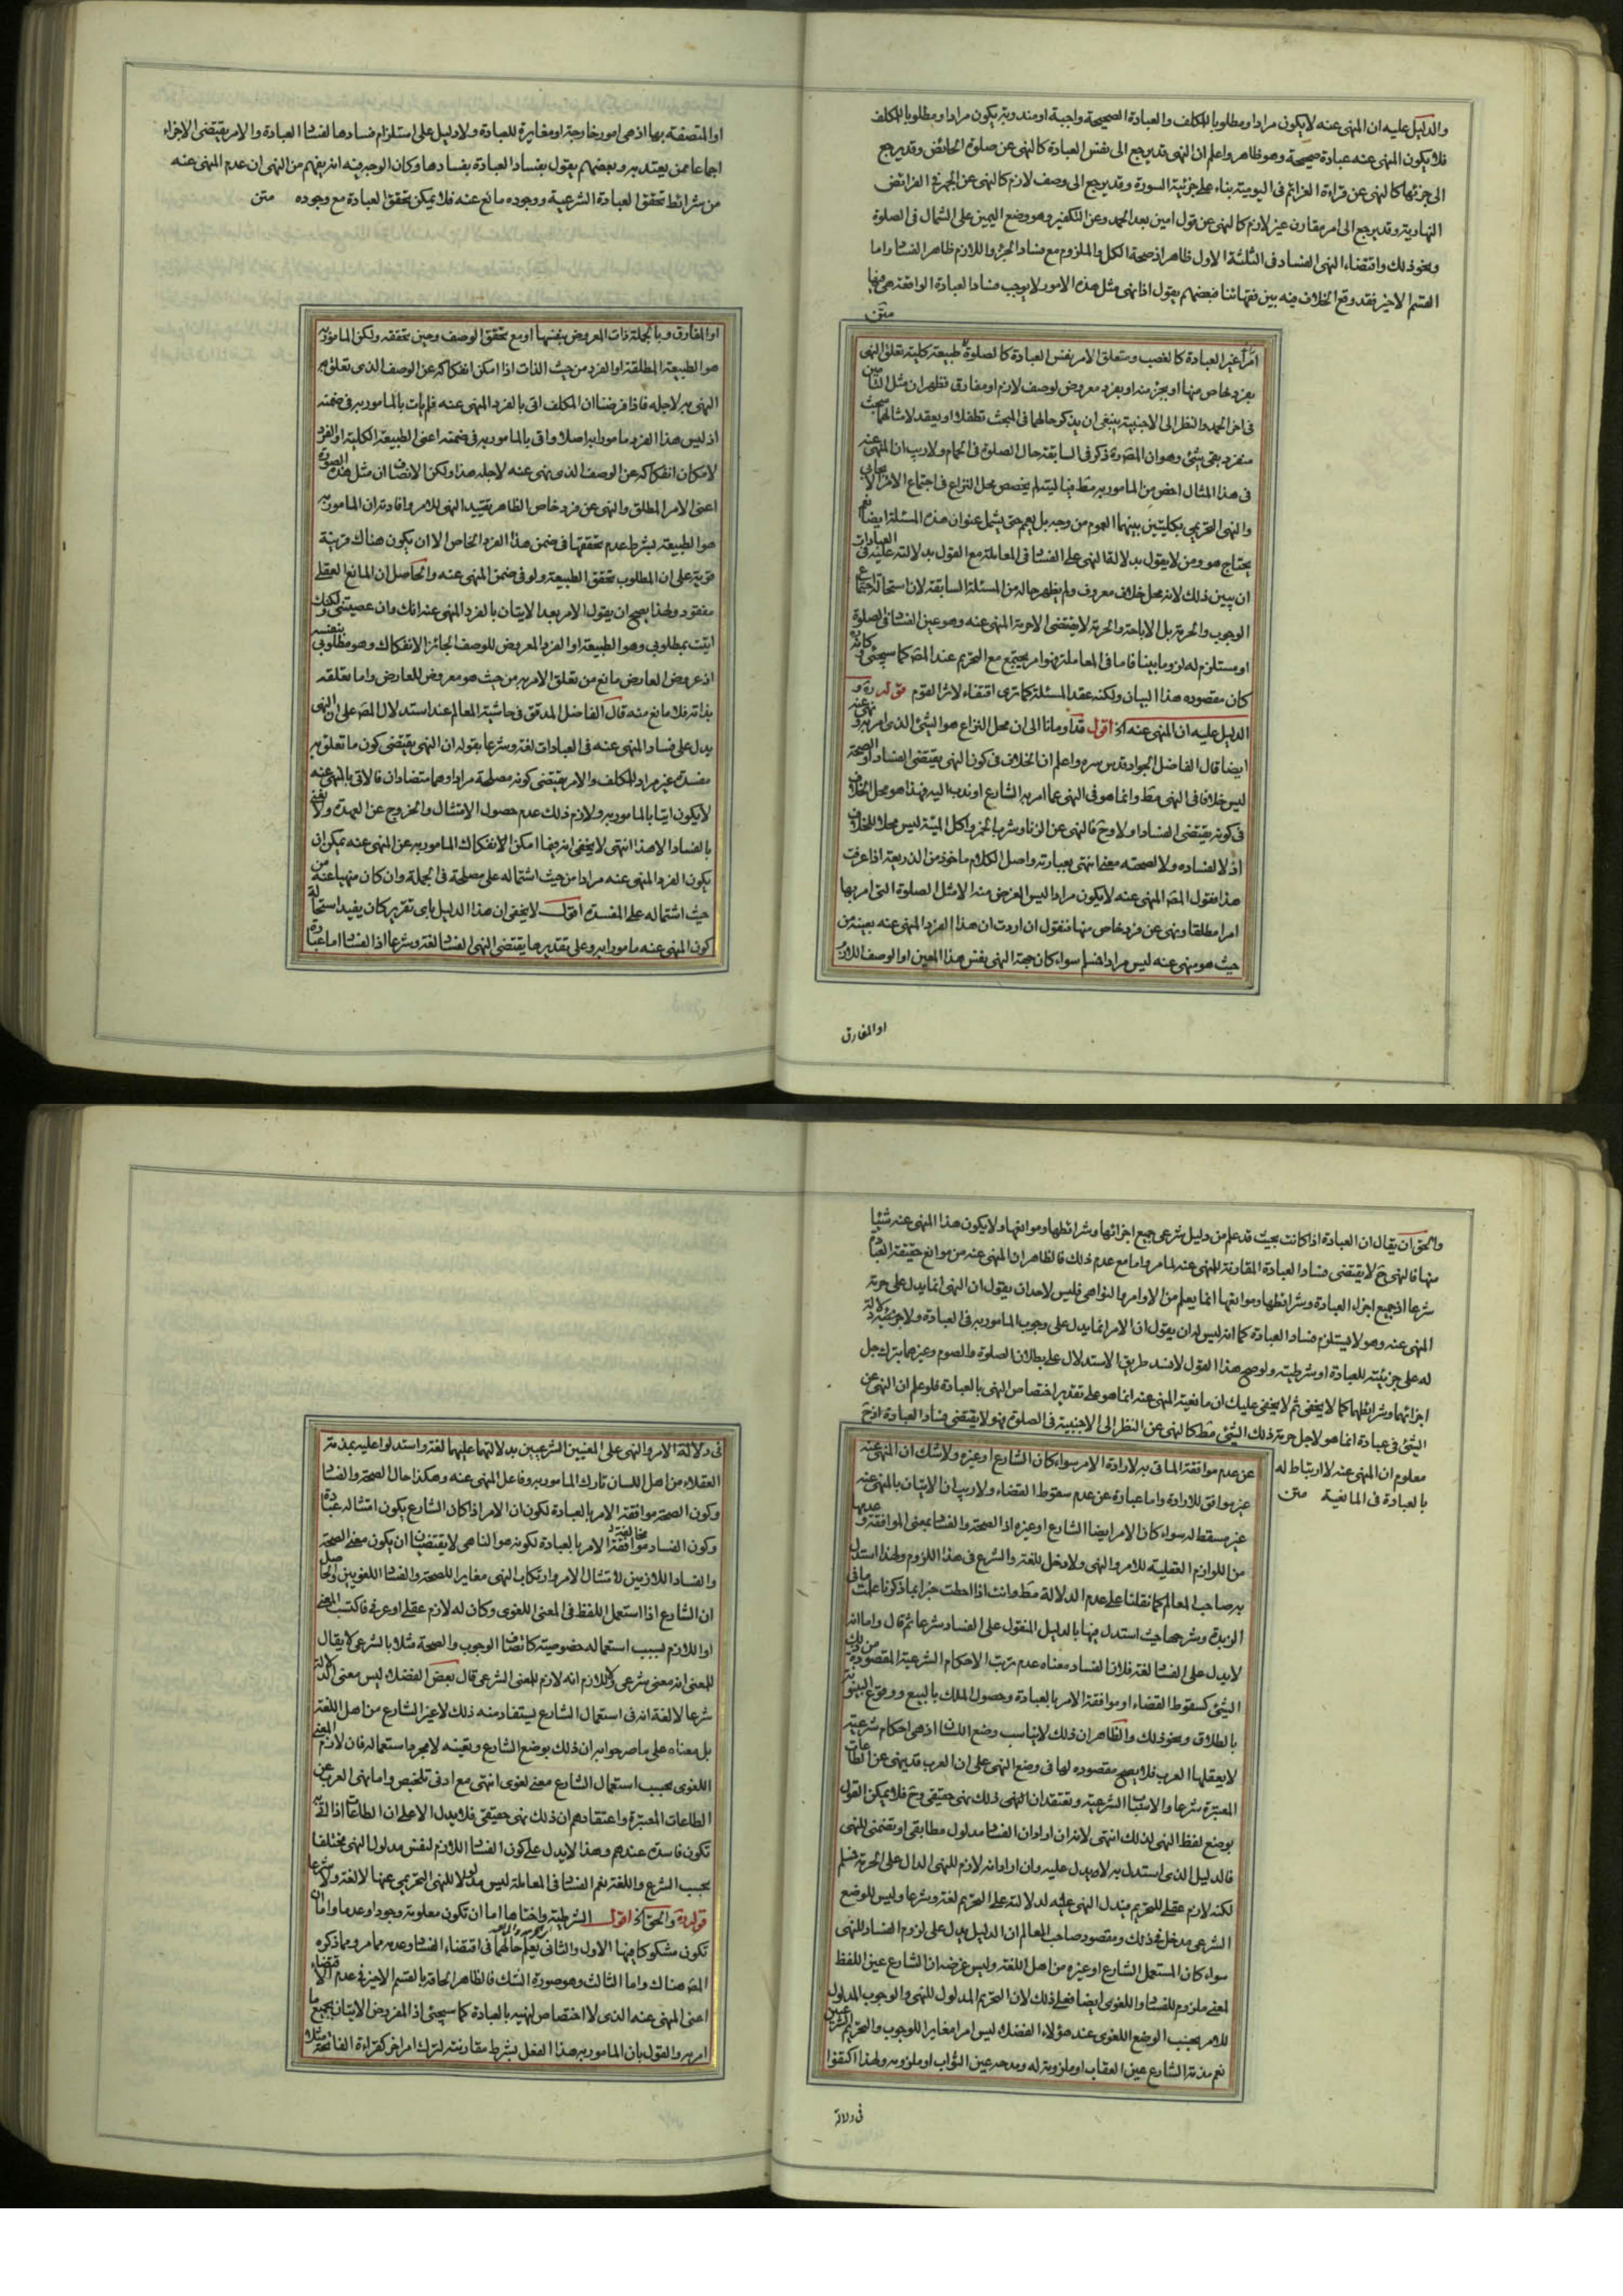 والدليل عليه ان المنهى عنه لا يكون مرادا ومطلوبا للمكلف والعبادة الصحيحة واجبة او مندوبة يكون مرادا ومطلوبا للمكلف
فلا يكون المنهى عنه عبادة صحيحة وهو ظاهر واعلم ان النهى قد يرجع الى نفس العبادة كالنهى عن صلوة الحائض وقد يرجع
الى جزئها كالنهى عن قراءة العزائم فى اليومية بناء على جزئية السورة وقد يرجع الى وصف لازم كالنهى عن الجهر فى الفرائض
النهارية وقد يرجع الى امر مقارن غير لازم كالنهى عن قول امين بعد الحمد وعن التكفير وهو وضع اليمين على الشمال فى الصلوة
ونحو ذلك واقتضاء النهى الفساد فى الثلثة الاول ظاهر اذ صحة الكل والملزوم مع فساد الجزء واللازم ظاهر الفساد واما
القسم الاخير فقد وقع الخلاف فيه بين فقهائنا فبعضهم يقول اذا نهى مثل هذه الامور لا يوجب فساد العبادة الواقعة هى فيها
متن
امرا غير العبادة كالغصب ومتعلق الامر نفس العبادة كالصلوة طبيعة كلية تعلق النهى
بفرد خاص منها او بجزء منه او بفرد معروض لوصف لازم او مفارق فظهر ان مثل التامين
فى اخر الحمد والنظر الى الاجنبية ينبغى ان يذكر حالهما فى المبحث تطفلا او يعقد لامثالهما مبحث
منفرد بقى شئ وهو ان المصره ذكر فى السابقة حال الصلوة فى الحمام ولا ريب ان المنهى عنه
فى هذا المثال اخص من المامور به مط فيا ليته لم يخصص محل النزاع فى اجتماع الامر الايجابى
والنهى التحريمى بكليتين بينهما العموم من وجه بل يعم حتى يشمل عنوان هذه المسئلة ايضا نعم
يحتاج هو ومن لا يقول بدلالة النهى على الفسا فى المعاملة مع القول بدلالته عليه فى العبادات
ان يبين ذلك لانه محل خلاف معروف ولم يظهر حاله من المسئلة السابقة لان استحالة اجتماع
الوجوب والحرمة بل الاباحة والحرمة لا يقتضى الا حرمة المنهى عنه وهو عين الفسا فى الصلوة
او مستلزم له لزوما بينا فاما فى المعاملة فهو امر يجتمع مع التحريم عند المصه كما سيجئ وكانه
كان مقصوده هذا البيان ولكنه عقد المسئلة كما ترى اقتفاء لاثر القوم قوله ره و
الدليل عليه ان المنهى عنه اه اقول قد اومانا الى ان محل النزاع هو الشئ الذى امر به ونهى عنه
ايضا قال الفاضل الجواد قدس سره واعلم ان الخلاف فى كون النهى يقتضى الفساد او الصحة
ليس خلافا فى النهى مط وانما هو فى النهى عما امر به الشارع او ندب اليه فهذا هو محل الخلاف
فى كونه يقتضى الفساد او لا وح فالنهى عن الزنا وشرب الخمر واكل الميتة ليس محلا للخلاف
اذ لا لفساده ولا لصحته معنى انتهى بعبارته واصل الكلام ماخوذ من الذريعة اذا عرفت
هذا فقول المصه المنهى عنه لا يكون مرادا ليس الغرض منه الا مثل الصلوة التى امر بها
امرا مطلقا ونهى عن فرد خاص منها فنقول ان اردت ان هذا الفرد المنهى عنه بعينه من
حيث هو منهى عنه ليس مرادا فسلم سواء كان جهة النهى نفس هذا المعين او الوصف اللازم
او المفارق
او المتصفة بها اذ هى امور خارجة او مغايرة للعبادة ولا دليل على استلزام فسادها لفسا العبادة والامر يقتضى الاجزاء
اجماعا ممن يعتد به وبعضهم يقول بفساد العبادة بفسادها وكان الوجه فيه انه يفهم من النهى ان عدم المنهى عنه
من شرائط تحقق العبادة الشرعية ووجوده مانع عنه فلا يمكن تحقق العبادة مع وجوده متن
او المفارق وبالجملة ذات المعروض بنفسها او مع تحقق الوصف وحين تحققه ولكن المامور به
هو الطبيعة المطلقة او الفرد من حيث الذات اذا امكن انفكاكه عن الوصف الذى تعلق به
النهى به لاجله فاذا فرضنا ان المكلف اتى بالفرد المنهى عنه فلم يات بالمامور به فى ضمنه
اذ ليس هذا الفرد مامورا به اصلا واتى بالمامور به فى ضمنه اعنى الطبيعة الكلية او الفرد
لامكان انفكاكه عن الوصف الذى نهى عنه لاجله هذا ولكن الانصاف ان مثل هذه الصورة
اعنى الامر المطلق والنهى عن فرد خاص الظاهر تقييد النهى للامر وافادته ان المامور به
هو الطبيعة بشرط عدم تحققها فى ضمن هذا الفرد الخاص الا ان يكون هناك قرينة
قوية على ان المطلوب تحقق الطبيعة ولو فى ضمن المنهى عنه والحاصل ان المانع العقلى
مفقود ولهذا يصح ان يقول الامر بعد الاتيان بالفرد المنهى عنه انك وان عصيتنى ولكنك
اتيت بمطلوبى وهو الطبيعة او الفرد المعروض للوصف الجائز الانفكاك وهو مطلوبى بنفسه
اذ عروض العارض مانع من تعلق الامر به من حيث هو معروض للعارض واما تعلقه
بذاته فلا مانع منه قال الفاضل المدقق فى حاشية المعالم عند استدلال المصه على ان النهى
يدل على فساد المنهى عنه فى العبادات لغة وشرعا بقوله ان النهى يقتضى كون ما تعلق به
مفسدة غير مراد للمكلف والامر يقتضى كونه مصلحة مرادا وهما متضادان فالاتى بالمنهى عنه
لا يكون اتيا بالمامور به ولازم ذلك عدم حصول الامتثال والخروج عن العهدة ولا نعنى
بالفساد الا هذا انتهى لا يخفى انه فيما امكن الانفكاك المامور به عن المنهى عنه يمكن ان
يكون الفرد المنهى عنه مرادا من حيث اشتماله على مصلحة فى الجملة وان كان منهيا عنه من
حيث اشتماله على المفسدة اقول لا يخفى ان هذا الدليل باى تقرير كان يفيد استحالة
كون المنهى عنه مامورا به وعلى تقديرها يقتضى النهى الفسا لغة وشرعا اذ الفسا اما عبارة
والحق ان يقال ان العبادة اذا كانت بحيث قد علم من دليل شرعى جميع اجزائها وشرائطها وموانعها ولا يكون هذا المنهى عنه شيئا
منها فالنهى ح لا يقتضى فساد العبادة المقارنة للمنهى عنه لما مر واما مع عدم ذلك فالظاهر ان المنهى عنه من موانع حقيقة العبادة
شرعا اذ جميع اجزاء العبادة وشرائطها وموانعها انما يعلم من الاوامر والنواهى فليس لاحد ان يقول ان النهى انما يدل على حرمة
المنهى عنه وهو لا يستلزم فساد العبادة كما انه ليس له ان يقول ان الامر انما يدل على وجوب المامور به فى العبادة ولا دلالة
له على جزئيته للعبادة او شرطيته ولو صح هذا القول لانسد طريق الاستدلال على بطلان الصلوة والصوم وغيرهما بترك جل
اجزائها وشرائطها كما لا يخفى ثم لا يخفى عليك ان مانعية المنهى عنه انما هو على تقدير اختصاص النهى بالعبادة فلو علم ان النهى عن
الشئ فى عبادة انما هو لاجل حرمة ذلك الشئ مط كالنهى عن النظر الى الاجنبية فى الصلوة فهو لا يقتضى فساد العبادة اذ ح
معلوم ان المنهى عنه لا ارتباط له
بالعبادة فى المانعية متن
عن عدم موافقة الماتى به لارادة الامر سواء كان الشارع او غيره ولا شك ان المنهى عنه
غير موافق للارادة واما عبارة عن عدم سقوط القضاء ولا ريب ان الاتيان بالمنهى عنه
غير مسقط له سواء كان الامر ايضا الشارع او غيره اذ الصحة والفسا بمعنى الموافقة وعدمها
من اللوازم العقلية للامر والنهى ولا دخل للغة والشرع فى هذا اللزوم ولهذا استدل
به صاحب المعالم كما نقلنا على عدم الدلالة مط وانت اذا احطت خبرا بما ذكرنا علمت ما فى
الزبدة وشرحها حيث استدل فيها بالدليل المنقول على الفساد شرعا ثم قال واما انه
لا يدل على الفسا لغة فلان الفساد معناه عدم ترتب الاحكام الشرعية المقصودة من ذلك
الشئ كسقوط القضاء او موافقة الامر بالعبادة وحصول الملك بالبيع ووقوع البينونة
بالطلاق ونحو ذلك والظاهر ان ذلك لا يناسب وضع اللسان اذ هى احكام شرعية
لا يعقلها العرب فلا يصح مقصوده لها فى وضع النهى على ان العرب قد ينهى عن الطاعات
المعتبرة شرعا والاسباب الشرعية ويعتقد ان النهى ذلك نهى حقيقى وح فلا يمكن القول
بوضع لفظ النهى لذلك انتهى لانه ان اراد ان الفسا مدلول مطابقى او تضمنى للنهى
فالدليل الذى استدل به لا يدل عليه وان اراد انه لازم للنهى الدال على الحرمة فسلم
لكنه لازم عقلى للتحريم فيدل النهى عليه لدلالته على التحريم لغة وشرعا وليس للوضع
الشرعى مدخل فى ذلك ومقصود صاحب المعالم ان الدليل يدل على لزوم الفساد للنهى
سواء كان المستعمل الشارع او غيره من اهل اللغة وليس غرضه ان الشارع عين اللفظ
لمعنى ملزوم للفسا واللغوى ايضا فعل ذلك لان التحريم المدلول للنهى والوجوب المدلول
للامر بحسب الوضع اللغوى عند هؤلاء الفضلاء ليس امرا مغايرا للوجوب والتحريم الشرعيين
نعم مذمة الشارع عين العقاب او ملزومة له ومدحه عين الثواب او ملزومه ولهذا اكتفوا
فى دلالة
فى دلالة الامر والنهى على المعنيين الشرعيين بدلالتهما عليهما لغة واستدلوا عليه بمذمة
العقلاء من اهل اللسان تارك المامور به وفاعل المنهى عنه وهكذا حال الصحة والفسا
وكون الصحة موافقة الامر بالعبادة لكون ان الامر اذا كان الشارع يكون امتثاله عبادة
وكون الفساد مخالفة الامر بالعبادة لكونه هو الناهى لا يقتضيان ان يكون معنى الصحة
والفساد اللازمين لامتثال الامر وارتكاب النهى مغايرا للصحة والفسا اللغويين والحاصل
ان الشارع اذا استعمل اللفظ فى المعنى اللغوى وكان له لازم عقلى او عرفى فاكتسب المعنى
او اللازم بسبب استعماله خصوصية كاتصاف الوجوب والصحة مثلا بالشرعى لا يقال
للمعنى انه معنى شرعى ولا للازم انه لازم للمعنى الشرعى قال بعض الفضلاء ليس معنى الدلالة
شرعا لا لغة انه فى استعمال الشارع يستفاد منه ذلك لا غير الشارع من اهل اللغة
بل معناه على ما صرحوا به ان ذلك بوضع الشارع وتعينه لا مجرد استعماله فان لازم المعنى
اللغوى بحسب استعمال الشارع معنى لغوى انتهى مع ادنى تلخيص واما نهى العرب عن
الطاعات المعتبرة واعتقادهم ان ذلك نهى حقيقى فلا يدل الا على ان الطاعات
تكون فاسدة عندهم وهذا لا يدل على كون الفسا اللازم لنفس مدلول النهى مختلفا
بحسب الشرع واللغة نعم الفسا فى المعاملة ليس مدلولا للنهى التحريمى عنها لا لغة ولا شرعا
قوله ره والحق اه اقول الشرطية واختاها اما ان تكون معلومة وجودا وعدما واما ان
تكون مشكوكا فيها الاول والثانى يعلم حالهما فى اقتضاء الفسا وعدمه مما مر ومما ذكره
المصه هناك واما الثالث وهو صورة الشك فالظاهر الحاقه بالقسم الاخير فى عدم الاقتضاء
اعنى المنهى عنه الذى لا اختصاص لنهيه بالعبادة كما سيجئ اذ المفروض الاتيان بجميع ما
امر به والقول بان المامور به هذا الفعل بشرط مقارنته لترك امر اخر كقراءة الفاتحة مثلا